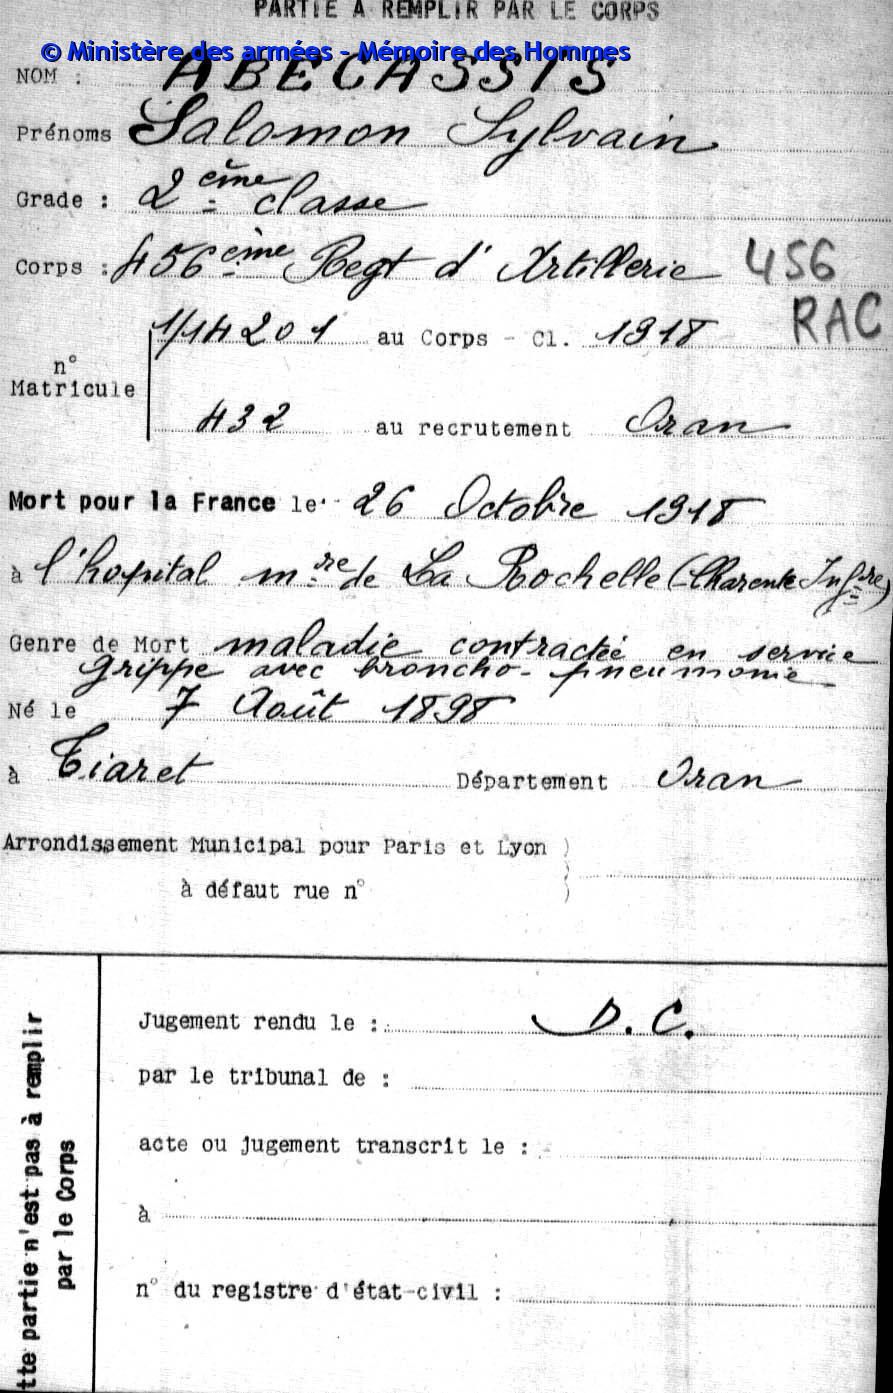 PARTIE A REMPLIR PAR LE CORPS
© Ministère des armées - Mémoire des Hommes
NOM : ABECASSIS
Prénoms Salomon Sylvain
Grade : 2ème classe
Corps : 456ème Regt d'Artillerie 456
RAC
n° Matricule
1/14201 au Corps - Cl. 1918
432 au recrutement Oran
Mort pour la France le 26 Octobre 1918
à l'hopital mre de La Rochelle (Charente Infre)
Genre de Mort maladie contractée en service
grippe avec broncho-pneumonie
Né le 7 Août 1898
à Tiaret Département Oran
Arrondissement Municipal pour Paris et Lyon )
à défaut rue n° )
tte partie n'est pas à remplir
par le Corps
Jugement rendu le : D. C.
par le tribunal de :
acte ou jugement transcrit le :
à
n° du registre d'état-civil :